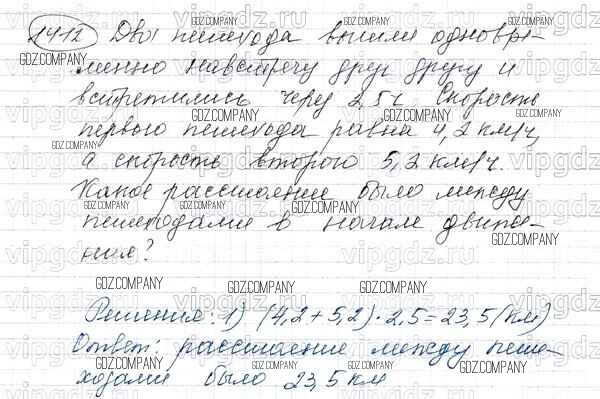 1412 Два пешехода вышли одновре-
менно навстречу друг другу и
встретились через 2,5 ч. Скорость
первого пешехода равна 4,2 км/ч,
а скорость второго 5,2 км/ч.
Какое расстояние было между
пешеходами в начале движе-
ния?
Решение: 1) (4,2 + 5,2) · 2,5 = 23,5 (км)
Ответ: расстояние между пеше-
ходами было 23,5 км
GDZ.COMPANY
vipgdz.ru